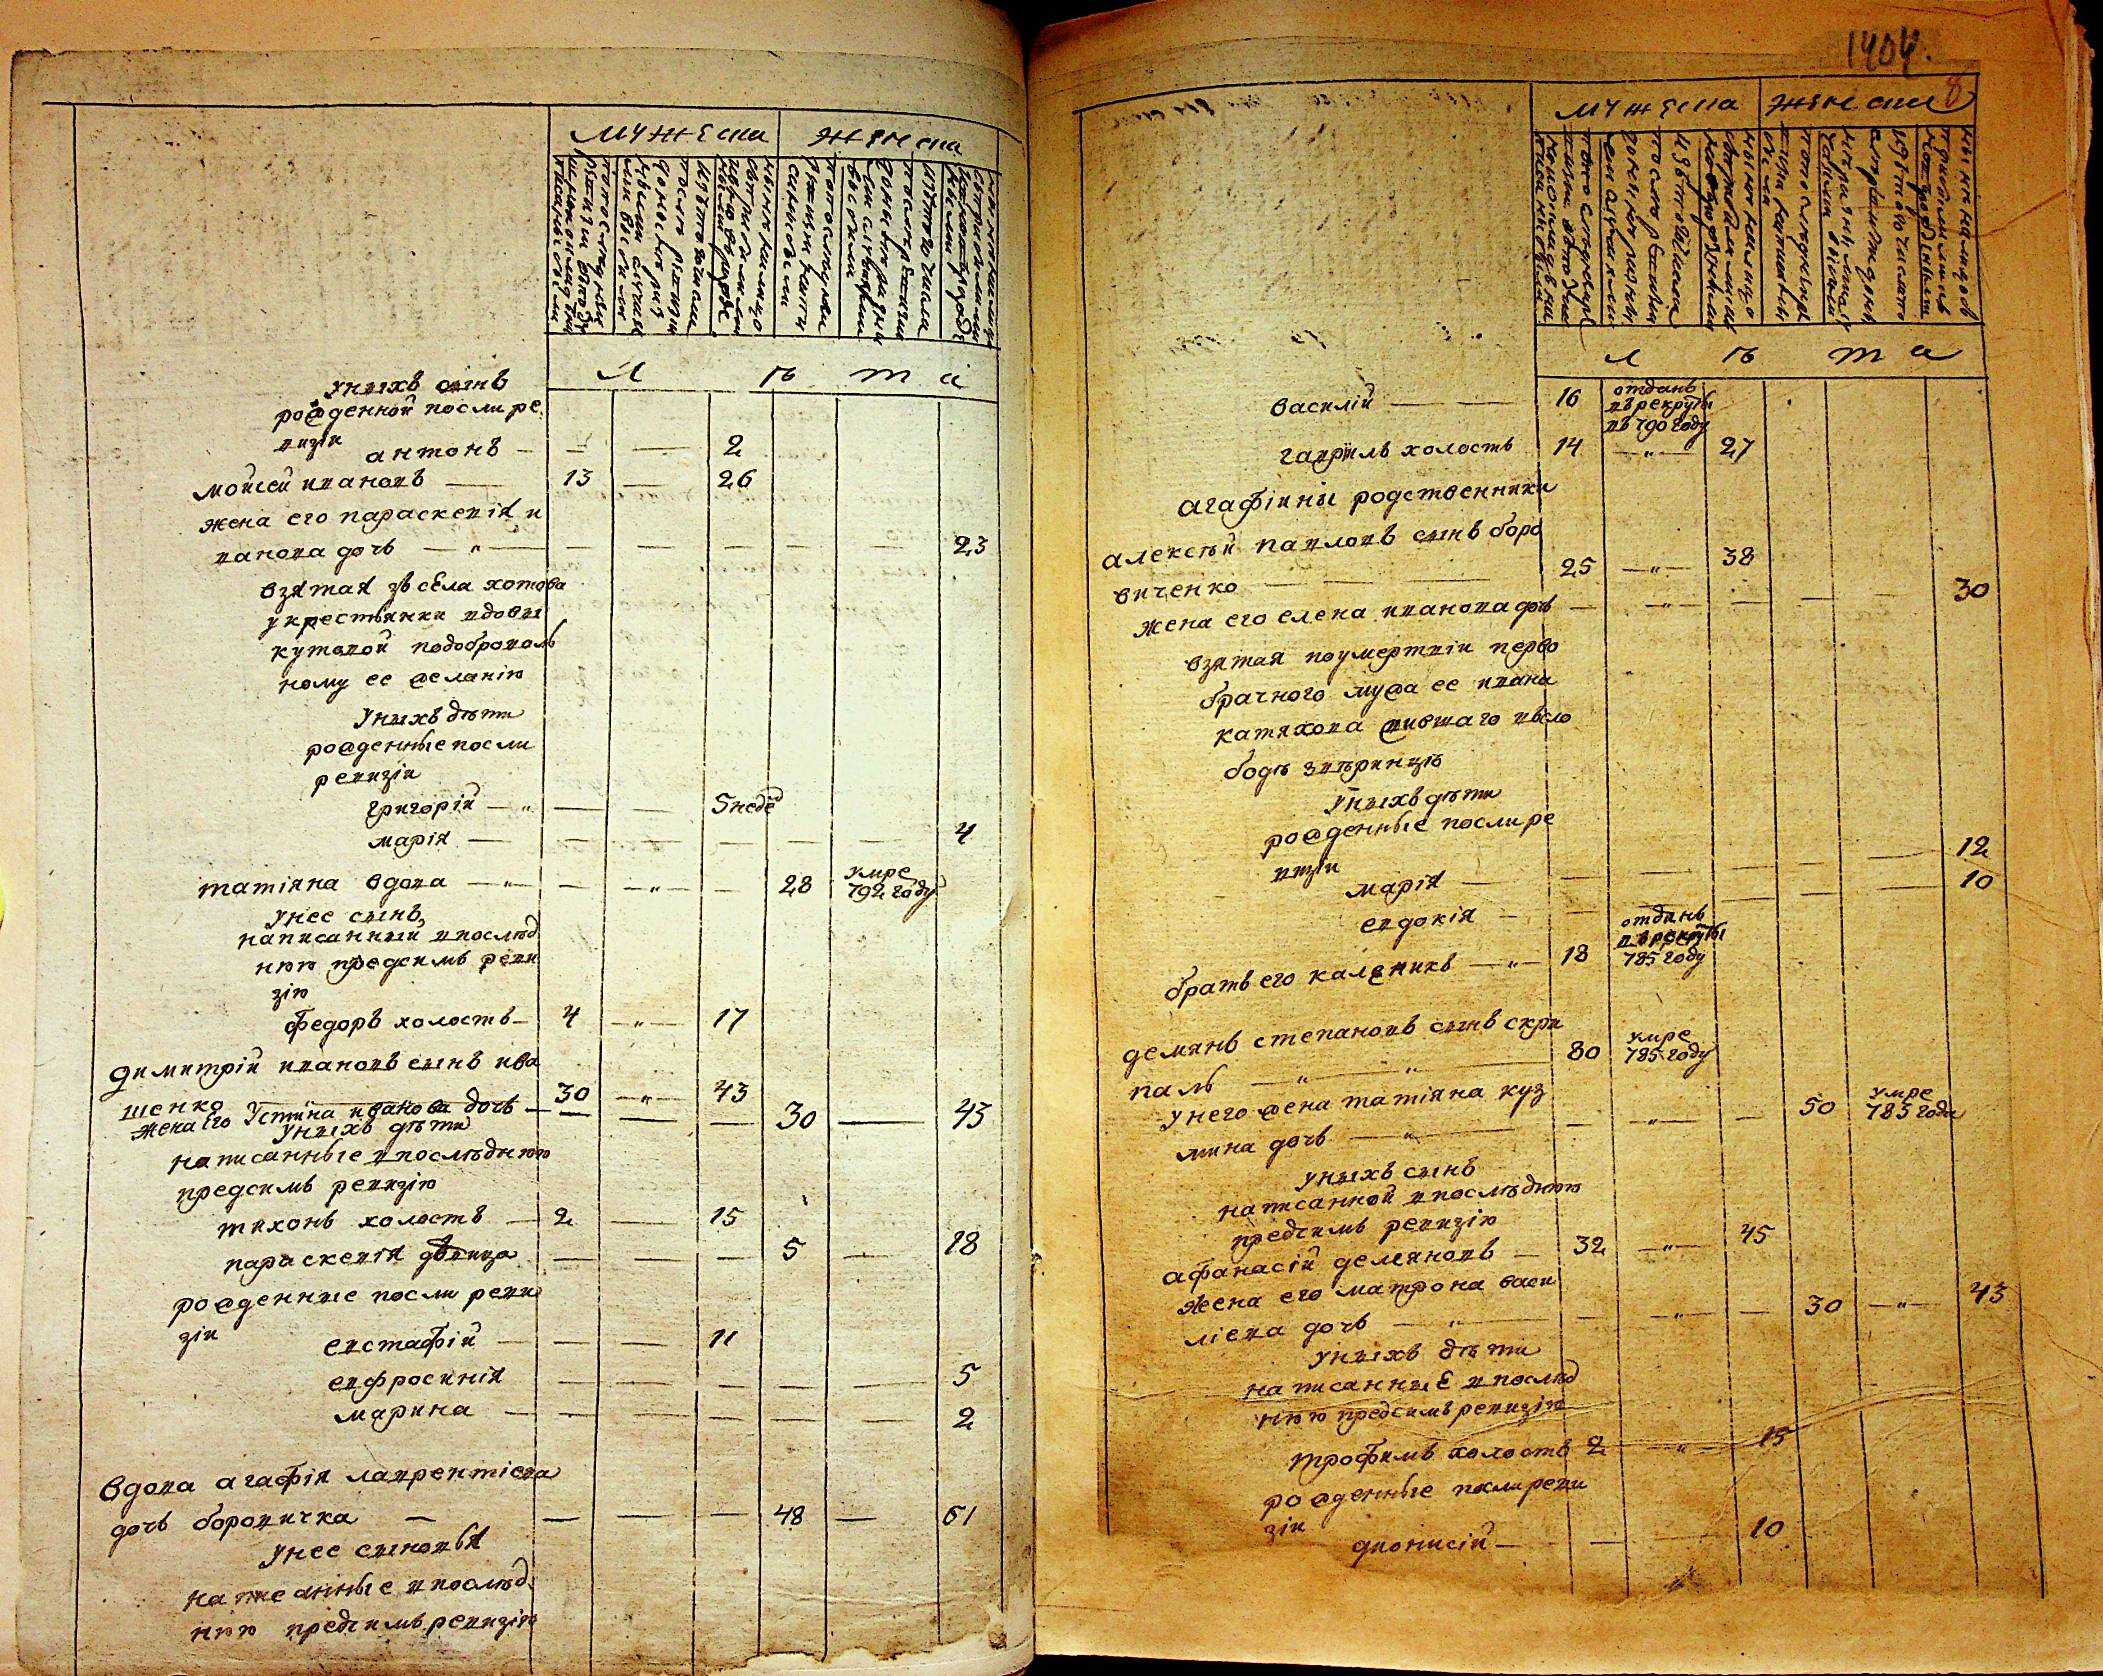 мужеска женска
л ѣ т а
уныхъ сынъ
рожденной после ре
визіи
антонъ — — — 2
мойсей ивановъ — 13 — 26
жена его параскевія и
ванова дочь — „ — — — — — — 23
взятая зъ села хотова
укрестьянки вдовы
кутовой подоброволь
ному ее желанію
уныхъ дѣти
рожденные после
ревизіи
григорій — „ — — 5 недѣ
марія — — — — — — 4
татіяна вдова — „ — — „ — — 28 умре
792 году
унее сынъ
написанный впослѣд
нюю предсимъ реви
зію
федоръ холостъ — 4 — „ — 17
димитрій ивановъ сынъ ива
шенко 30 — „ — 43
жена его Устина иванова дочь — — — — 30 — 43
уныхъ дѣти
написанные впослѣднюю
предсимъ ревизію
тихонъ холостъ — 2 — 15
параскевія девица — — — 5 — 18
рожденные после реви
зіи
евстафій — — — 11
евфросинія — — — — — 5
марина — — — — — — 2
вдова агафія лаврентіева
дочь боровичка — — — — 48 — 61
унее сыновья
написанные впослѣд
нюю предсимъ ревизію
1404.
8
мужеска женска
л ѣ т а
василій — — 16 отданъ
въ рекруты
въ 790 году
гаврилъ холостъ 14 — „ — 27
агафіины родственники
алексѣй павловъ сынъ боро
виченко — — — 25 — „ — 38
жена его елена иванова дочь — — „ — — — — 30
взятая поумертвіи перво
брачного мужа ее ивана
катахова жившаго въсло
бодѣ звѣринцѣ
уныхъ дѣти
рожденные после ре
визіи
марія — — — — — — 12
евдокія — — — — — 10
братъ его каленикъ — „ — 18 отданъ
въ рекруты
785 году
демянъ степановъ сынъ скри
паль — „ — „ — 80 умре
785 году
унего жена татіяна куз
мина дочь — „ — — — „ — — 50 умре
785 годи
уныхъ сынъ
написанной впослѣднюю
предсимъ ревизію
афанасій демяновъ — 32 — „ — 45
жена его матрона васи
ліева дочь — „ — — — „ — — 30 — „ — 43
уныхъ дѣти
написанные впослѣд
нюю предсимъ ревизію
трофимъ холостъ 2 — „ — 15
рожденные после реви
зіи
дионисій — — — 10